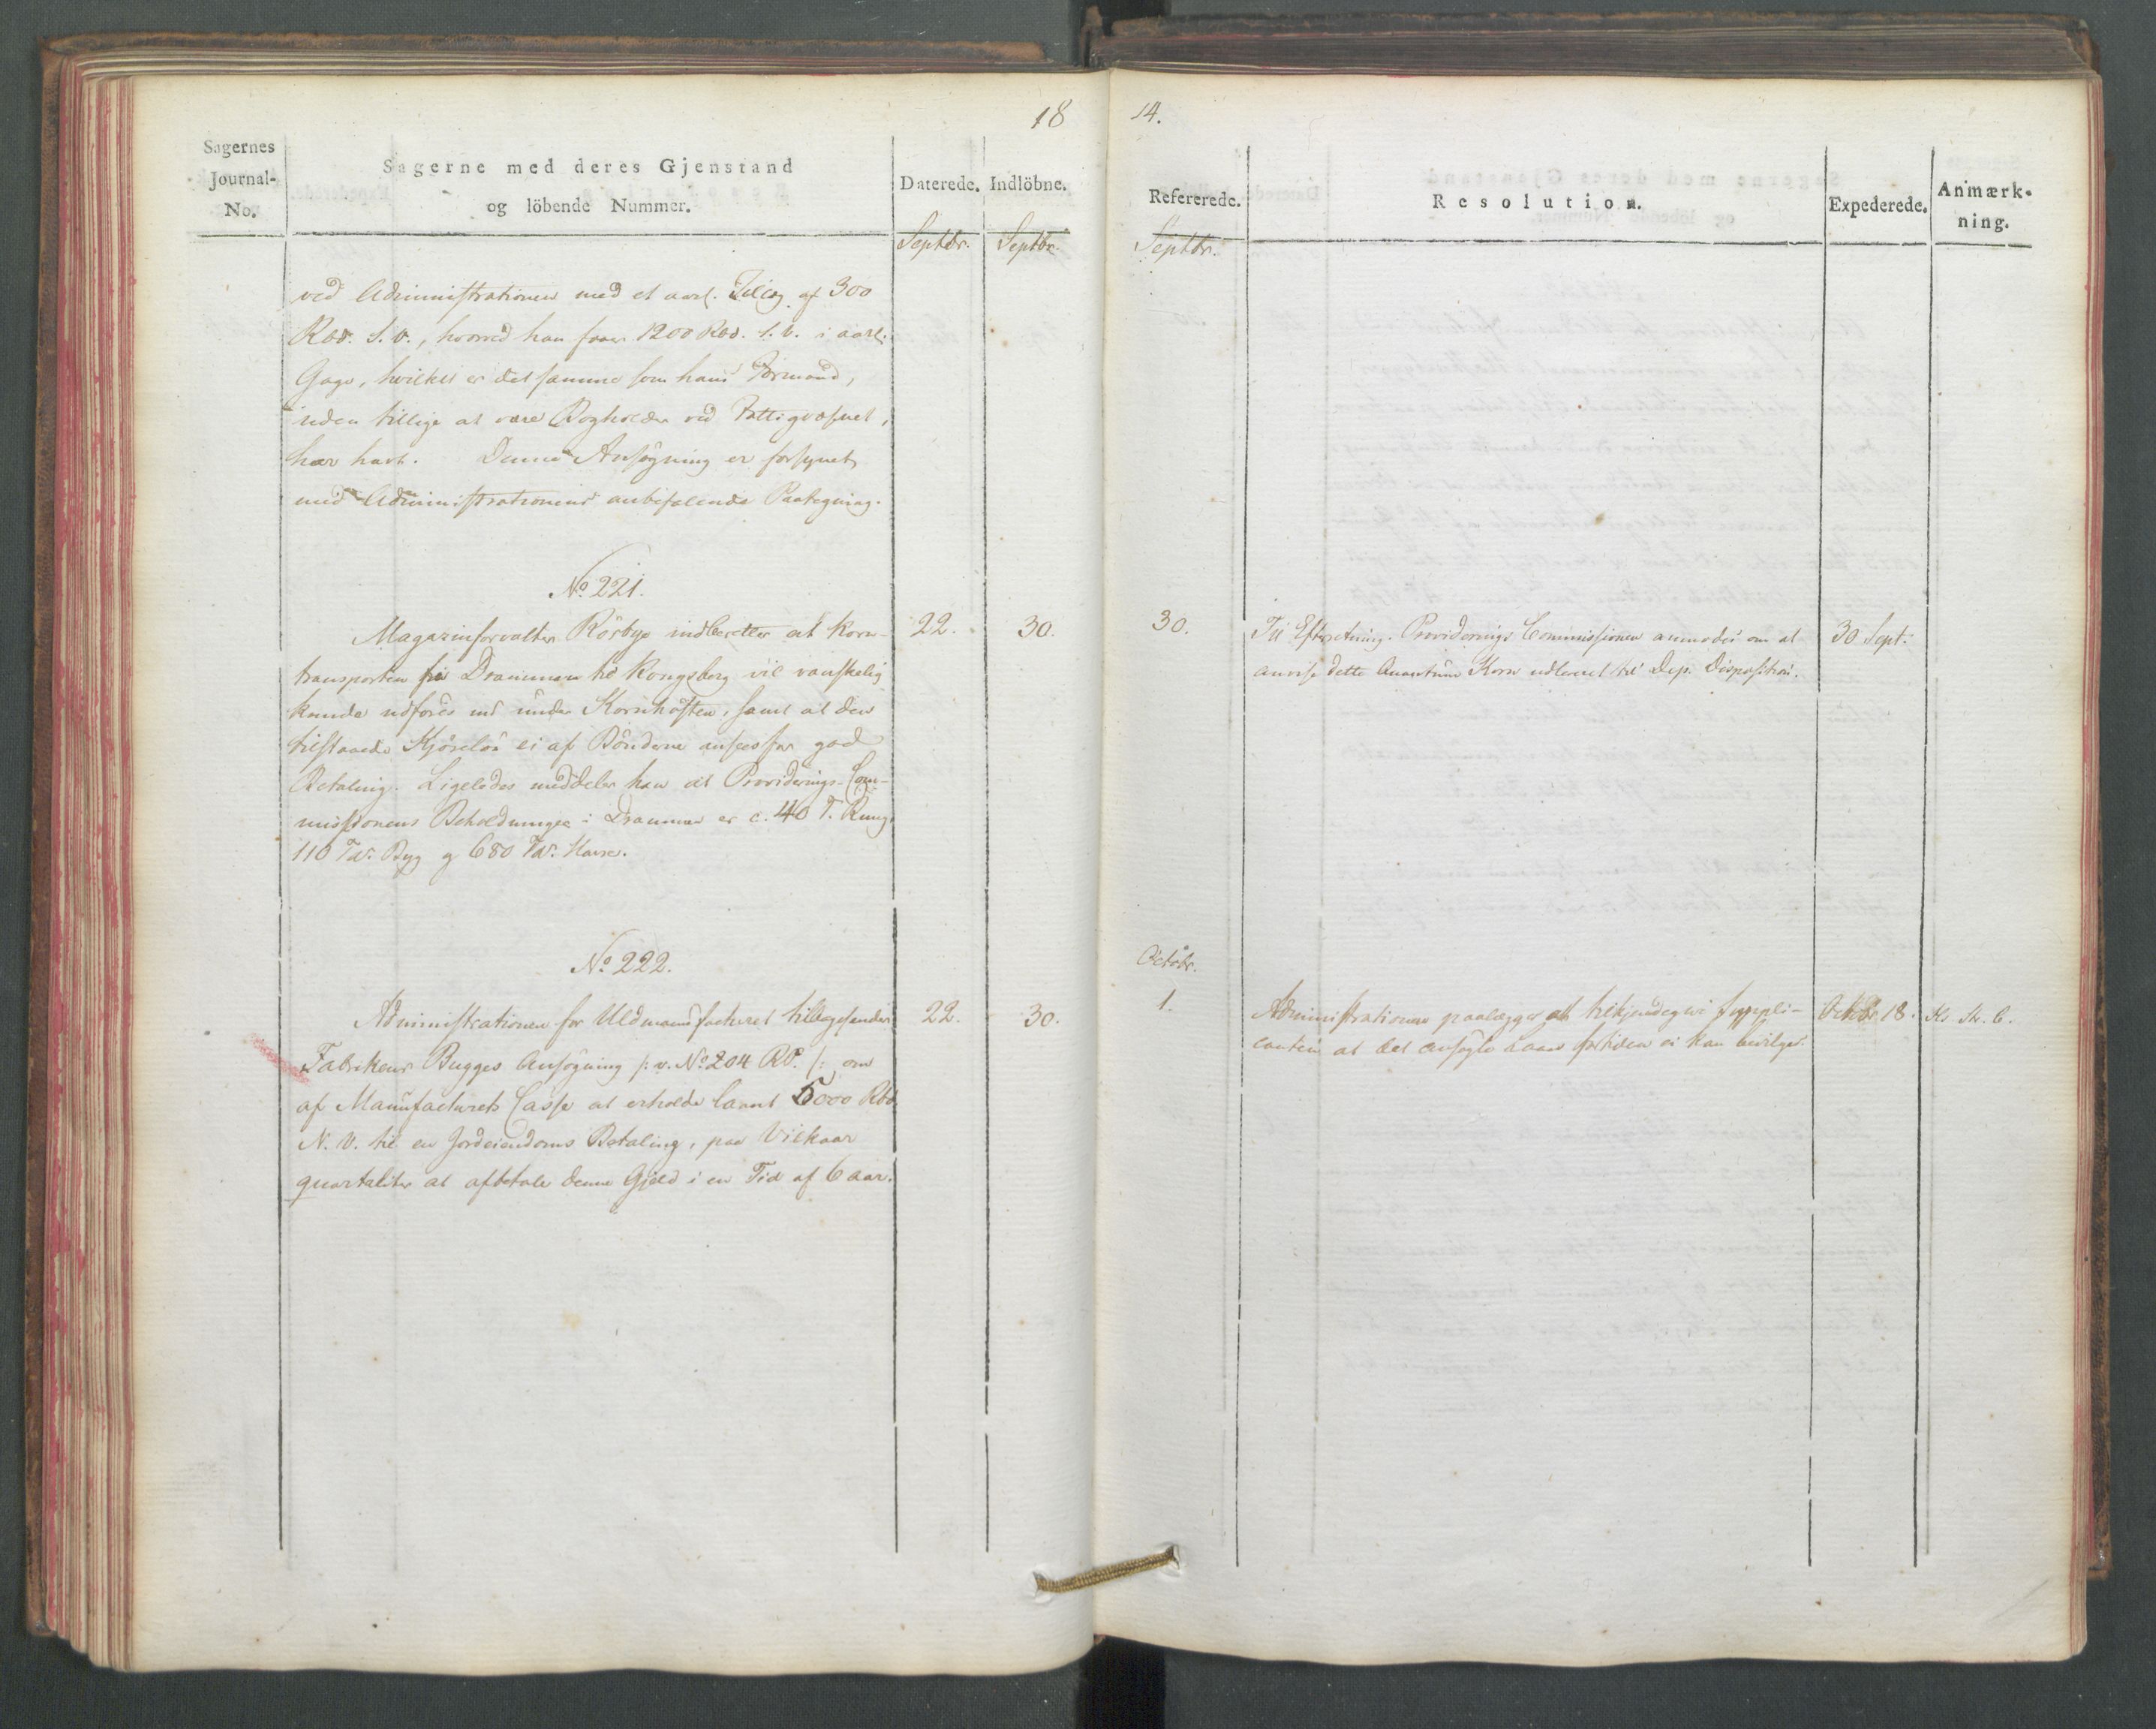 18
Sagernes
Journal-
No.
Sagerne med deres Gjenstand
og löbende Nummer.
Daterede.
Indlöbne.
Septbr.
Septbr.
ved Administrationen med et aarl. Tillæg af 300
Rbd. S. V., hvorved han faaer 1200 Rbd. S. V. i aarl.
Gage, hvilket er det samme som hans Formand,
uden tillige at være Bogholder ved Fattigvæsnet,
har havt. Denne Ansögning er forsynet
med Administrationens anbefalende Paategning.
No. 221.
Magazinforvalter Rösbye indberetter at Korn-
22.
30.
transporten fra Drammen til Kongsberg vil vanskelig
kunde udföres nu under Kornhösten, samt at den
tilstaaede Kjörelön ei af Bönderne ansees for god
Betaling. Ligeledes meddeler han at Providerings-Com-
missionens Beholdninger i Drammen er c. 40 T. Rug,
110 Tdr. Byg og 680 Tdr. Havre.
No. 222.
Administrationen for Uldmanufacturet tilbagesender
22.
30.
Fabrikeur Bugges Ansögning /: v. No. 204 RP. :/ om
af Manufacturets Casse at erholde laant 5000 Rbd.
N. V. til en Jordeiendoms Betaling, paa Vilkaar
quartaliter at afbetale denne Gjeld i en Tid af 6 aar.
14.
Refererede.
Resolution.
Expederede.
Anmærk-
ning.
Septbr.
30.
Til Efterretning. Providerings Commissionen anmodes om at
30 Sept.
anvise dette Quantum Korn udleveret til Dep. Disposition.
Octobr.
1.
Administrationen paalægges at tilkjendegive Suppli-
Octbr. 18.
canten at det ansögte Laan for tiden ei kan bevilges.